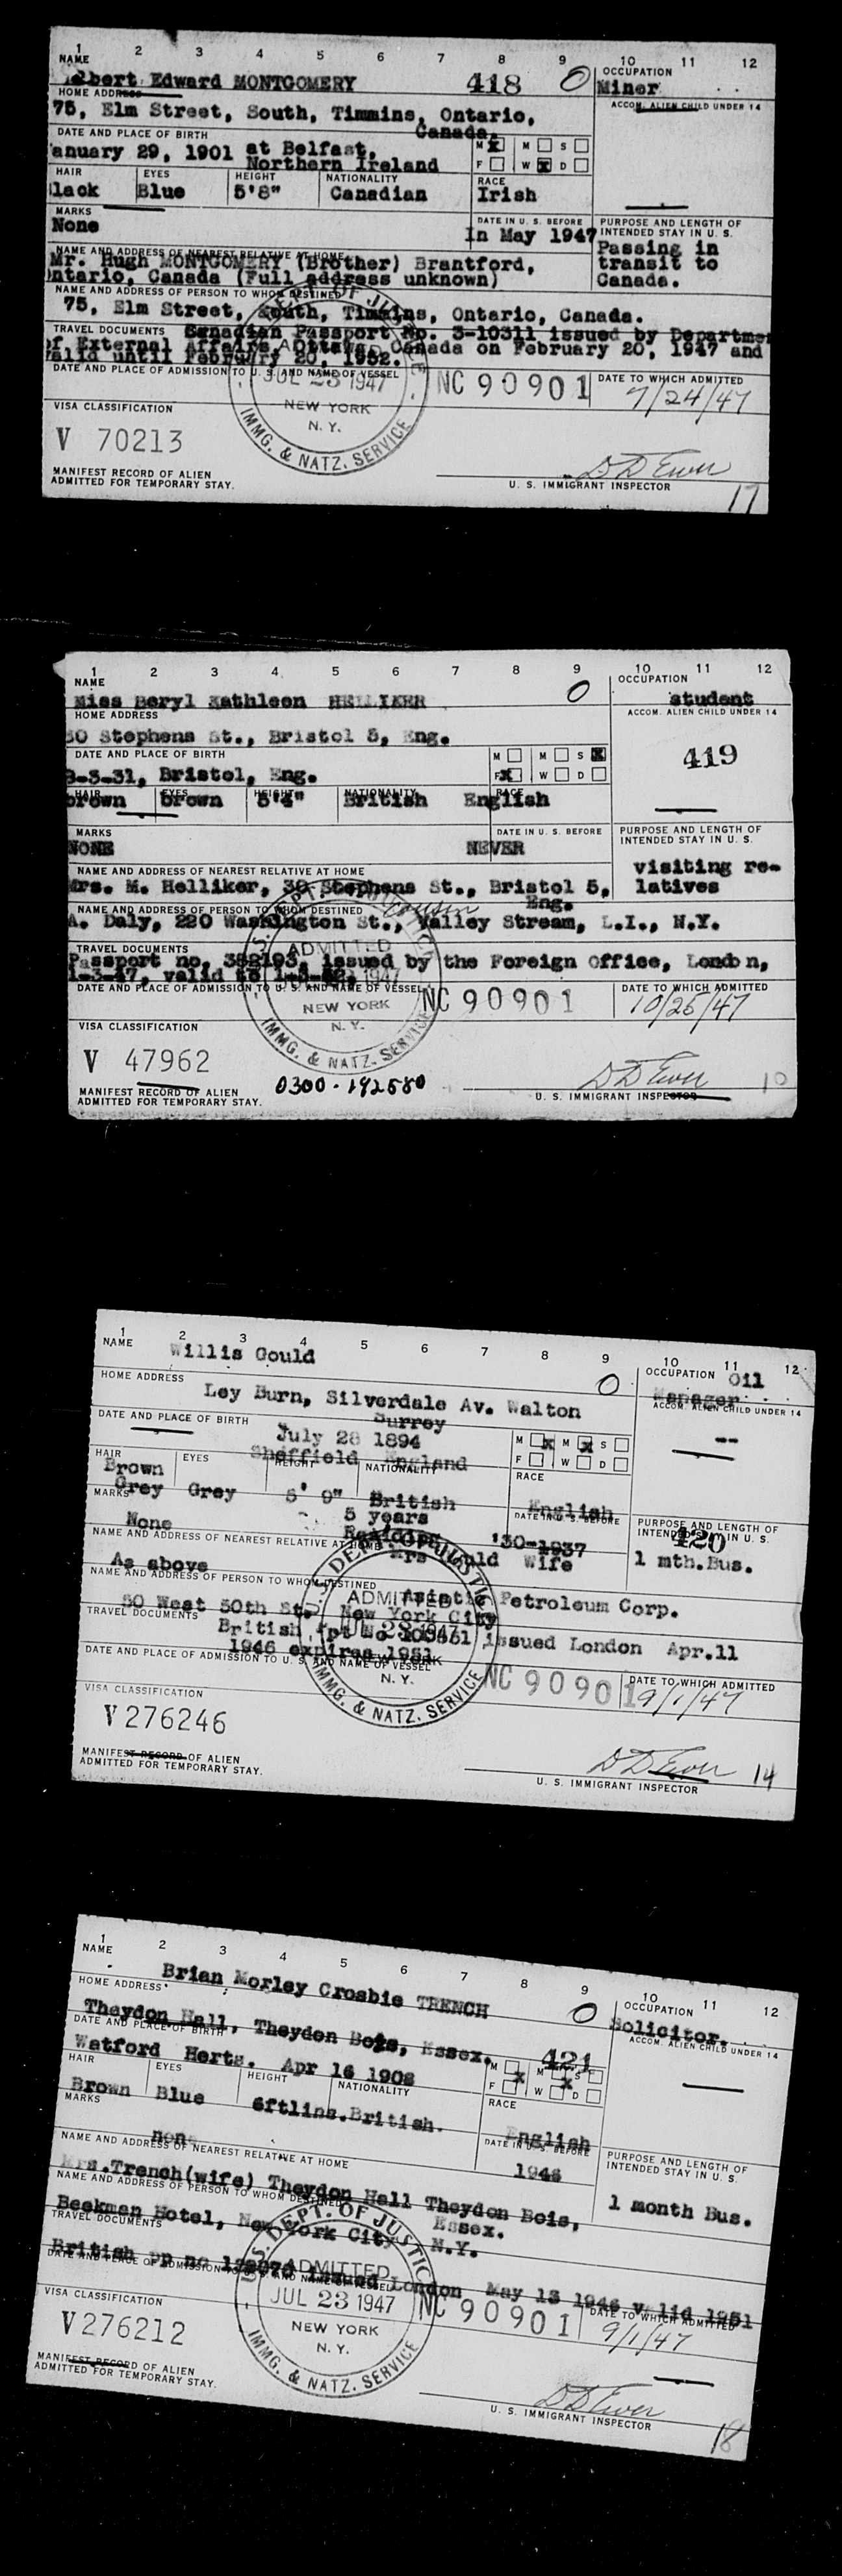 1 2 3 4 5 6 7 8 9 10 11 12
NAME OCCUPATION
lbert Edward MONTGOMERY 418 0 Miner
HOME ADDRESS ACCOM. ALIEN CHILD UNDER 14
75, Elm Street, South, Timmins, Ontario,
Canada.
DATE AND PLACE OF BIRTH M X M S
anuary 29, 1901 at Belfast, F W X D
Northern Ireland
HAIR EYES HEIGHT NATIONALITY RACE
lack Blue 5'8" Canadian Irish
MARKS DATE IN U. S. BEFORE PURPOSE AND LENGTH OF INTENDED STAY IN U. S.
None In May 1947 Passing in
transit to
Canada.
NAME AND ADDRESS OF NEAREST RELATIVE AT HOME
Mr. Hugh MONTGOMERY (Brother) Brantford,
ntario, Canada (Full address unknown)
NAME AND ADDRESS OF PERSON TO WHOM DESTINED
75, Elm Street, South, Timmins, Ontario, Canada.
TRAVEL DOCUMENTS Canadian Passport No. 3-10311 issued by Departmen
of External Affairs, Ottawa, Canada on February 20, 1947 and
valid until February 20, 1952.
DATE AND PLACE OF ADMISSION TO U. S. AND NAME OF VESSEL NC 90901 DATE TO WHICH ADMITTED
JUL 23 1947 7/24/47
NEW YORK
N. Y.
IMMG. & NATZ. SERVICE
VISA CLASSIFICATION
V 70213
MANIFEST RECORD OF ALIEN
ADMITTED FOR TEMPORARY STAY.
D D Ewer
U. S. IMMIGRANT INSPECTOR 17
1 2 3 4 5 6 7 8 9 10 11 12
NAME OCCUPATION
Miss Beryl Kathleen HELLIKER 0 student
HOME ADDRESS ACCOM. ALIEN CHILD UNDER 14
30 Stephens St., Bristol 5, Eng. 419
DATE AND PLACE OF BIRTH M M S X
3-3-31, Bristol, Eng. F X W D
HAIR EYES HEIGHT NATIONALITY RACE
brown brown 5'4" British English
MARKS DATE IN U. S. BEFORE PURPOSE AND LENGTH OF INTENDED STAY IN U. S.
NONE NEVER visiting re-
latives
NAME AND ADDRESS OF NEAREST RELATIVE AT HOME
Mrs. M. Helliker, 30 Stephens St., Bristol 5,
Eng.
NAME AND ADDRESS OF PERSON TO WHOM DESTINED cousin
A. Daly, 220 Washington St., Valley Stream, L.I., N.Y.
TRAVEL DOCUMENTS
Passport no. issued by the Foreign Office, London,
valid to
DATE AND PLACE OF ADMISSION TO U. S. AND NAME OF VESSEL NC 90901 DATE TO WHICH ADMITTED
ADMITTED 1947 10/25/47
NEW YORK
N. Y.
IMMG. & NATZ. SERVICE
VISA CLASSIFICATION
V 47962
MANIFEST RECORD OF ALIEN
ADMITTED FOR TEMPORARY STAY.
0300-142580
D D Ewer 10
U. S. IMMIGRANT INSPECTOR
1 2 3 4 5 6 7 8 9 10 11 12
NAME Willis Gould 0 OCCUPATION Oil
Manager
HOME ADDRESS ACCOM. ALIEN CHILD UNDER 14
Ley Burn, Silverdale Av. Walton
Surrey
DATE AND PLACE OF BIRTH M X M X S
July 28 1894 F W D
Sheffield England
HAIR EYES HEIGHT NATIONALITY RACE
Brown
Grey Grey 5' 9" British English
MARKS 5 years DATE IN U. S. BEFORE PURPOSE AND LENGTH OF INTENDED STAY IN U. S.
None '30-1937 420
1 mth.Bus.
NAME AND ADDRESS OF NEAREST RELATIVE AT HOME
As above Mrs Gould Wife
NAME AND ADDRESS OF PERSON TO WHOM DESTINED
Asiatic Petroleum Corp.
50 West 50th St. New York City
TRAVEL DOCUMENTS
British ppt No issued London Apr.11
1946 expires 1951
DATE AND PLACE OF ADMISSION TO U. S. AND NAME OF VESSEL NC 90901 DATE TO WHICH ADMITTED
DEPT. OF JUSTICE
ADMITTED
JUL 23 1947 9/1/47
NEW YORK
N. Y.
IMMG. & NATZ. SERVICE
VISA CLASSIFICATION
V 276246
MANIFEST RECORD OF ALIEN
ADMITTED FOR TEMPORARY STAY.
D D Ewer 14
U. S. IMMIGRANT INSPECTOR
1 2 3 4 5 6 7 8 9 10 11 12
NAME OCCUPATION
Brian Morley Crosbie TRENCH 0 Solicitor.
HOME ADDRESS ACCOM. ALIEN CHILD UNDER 14
Theydon Hall, Theydon Bois, Essex. 421
DATE AND PLACE OF BIRTH M X M X S
Watford Herts. Apr 16 1908 F W D
HAIR EYES HEIGHT NATIONALITY RACE
Brown Blue 6ft1ins. British. English
MARKS DATE IN U. S. BEFORE PURPOSE AND LENGTH OF INTENDED STAY IN U. S.
non 1946 1 month Bus.
NAME AND ADDRESS OF NEAREST RELATIVE AT HOME
Mrs.Trench(wife) Theydon Hall Theydon Bois,
Essex.
NAME AND ADDRESS OF PERSON TO WHOM DESTINED
Beekman Hotel, New York City N.Y.
TRAVEL DOCUMENTS
British PP no issued London May 13 1946 valid 1951
DATE AND PLACE OF ADMISSION TO U. S. AND NAME OF VESSEL NC 90901 DATE TO WHICH ADMITTED
U.S. DEPT. OF JUSTICE
ADMITTED
JUL 23 1947 9/1/47
NEW YORK
N. Y.
IMMG. & NATZ. SERVICE
VISA CLASSIFICATION
V 276212
MANIFEST RECORD OF ALIEN
ADMITTED FOR TEMPORARY STAY.
D D Ewer
U. S. IMMIGRANT INSPECTOR 18